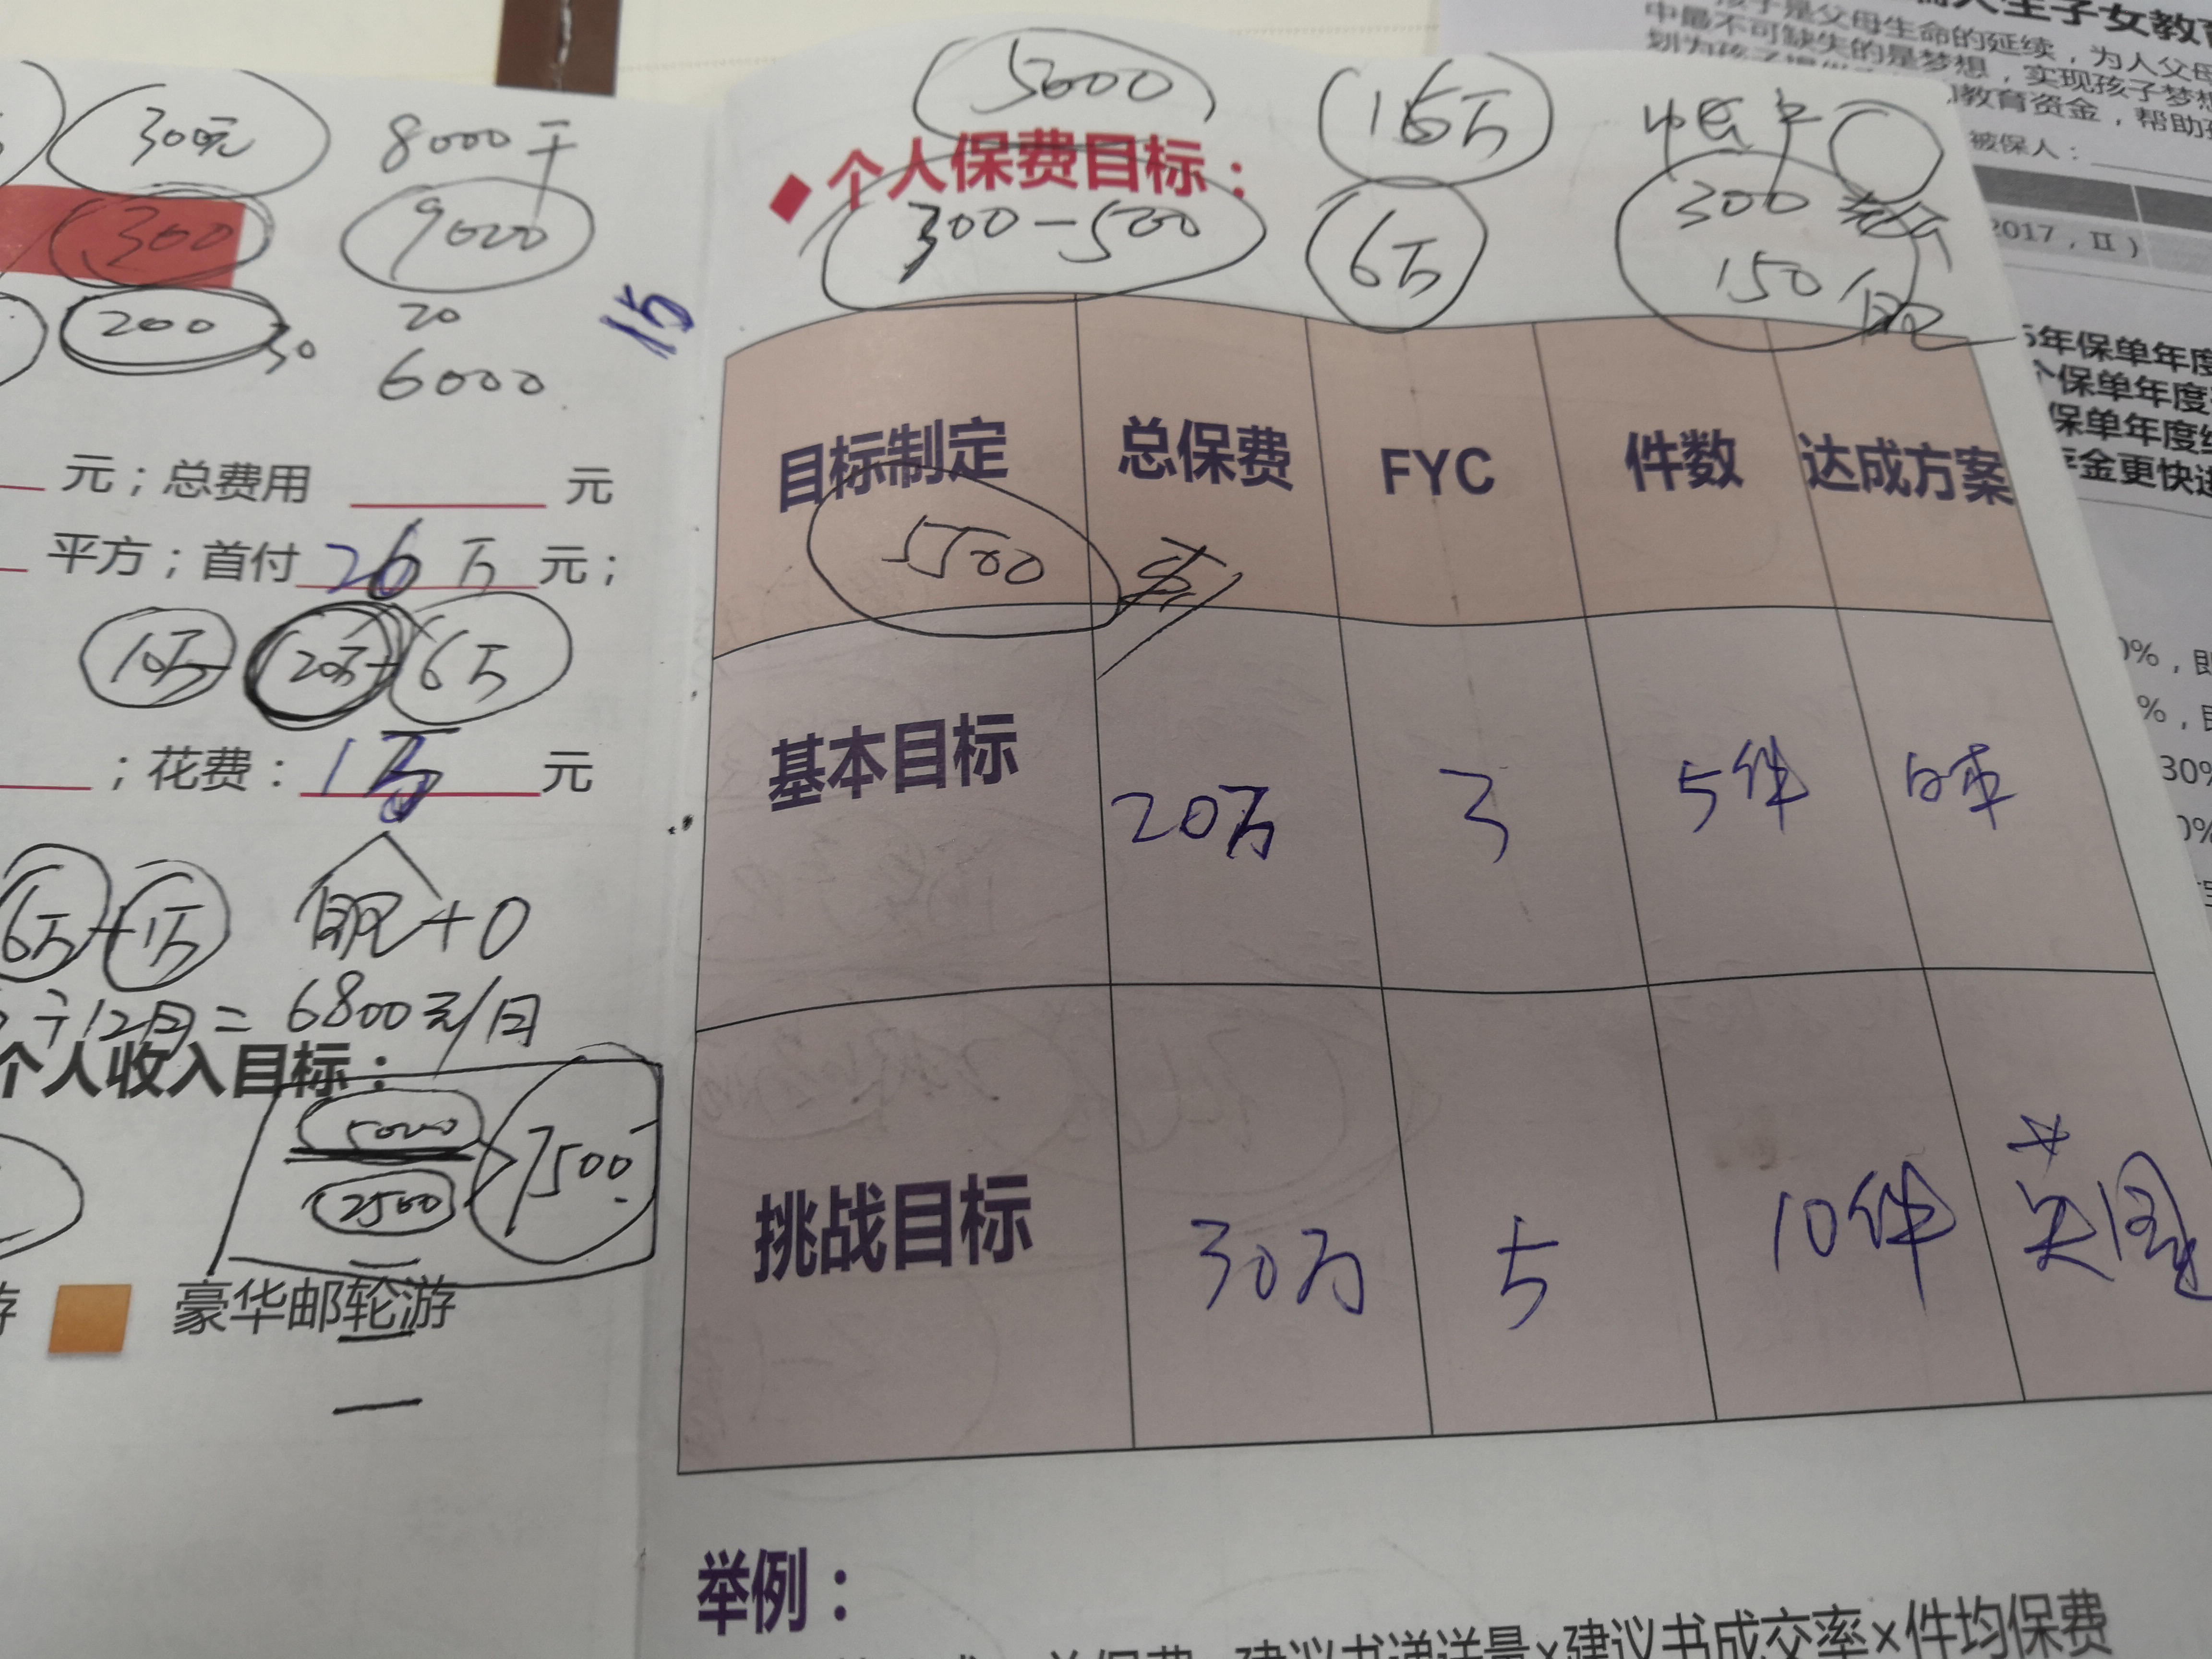 300元
8000
300
9000
200
30
20
6000
15
元；总费用 元
平方；首付 26万 元；
10万
20万
6万
；花费：1万 元
6万+1万
+0
÷12月=6800元/月
个人收入目标：
5000
2500
7500
豪华邮轮游
5000
15万
◆个人保费目标：
300-500
6万
300
150
目标制定 总保费 FYC 件数 达成方案
5500
基本目标 20万 3 5件 日本
挑战目标 30万 5 10件 英国
举例：
总保费 建议书递送量×建议书成交率×件均保费
生子女教育
孩子是父母生命的延续，为人父母
中最不可缺失的是梦想，实现孩子梦想
教育资金，帮助孩
被保人：
2017，II）
5年保单年度
个保单年度
保单年度
年金更快
0%，即
%，即
30%
0%